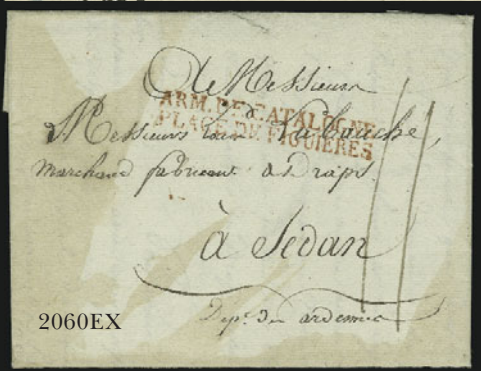 A Messieur
ARM. DE CATALOGNE
PLACE DE FIGUIERES
Messieurs Labauche,
marchand fabricant de Draps
à Sedan
Dept. des ardennes
2060EX